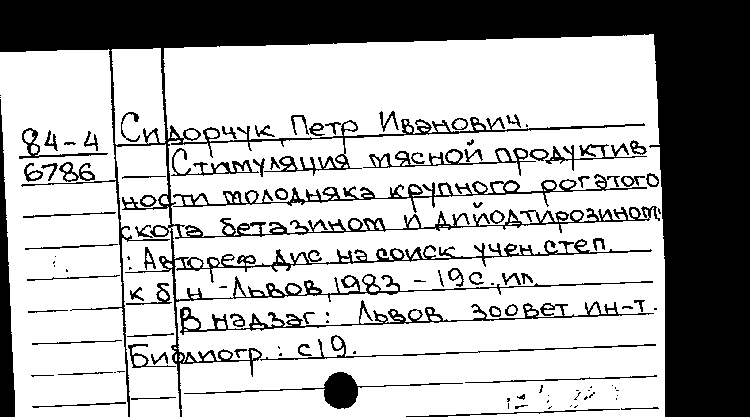 84-4
6786
Сидорчук, Петр Иванович.
Стимуляция мясной продуктив-
ности молодняка крупного рогатого
скота бетазином и дийодтирозином:
: Автореф. дис. на соиск. учен. степ.
к б н -Львов, 1983 - 19с., ил.
В надзаг: Львов. зоовет ин-т.
Библиогр.: с19.